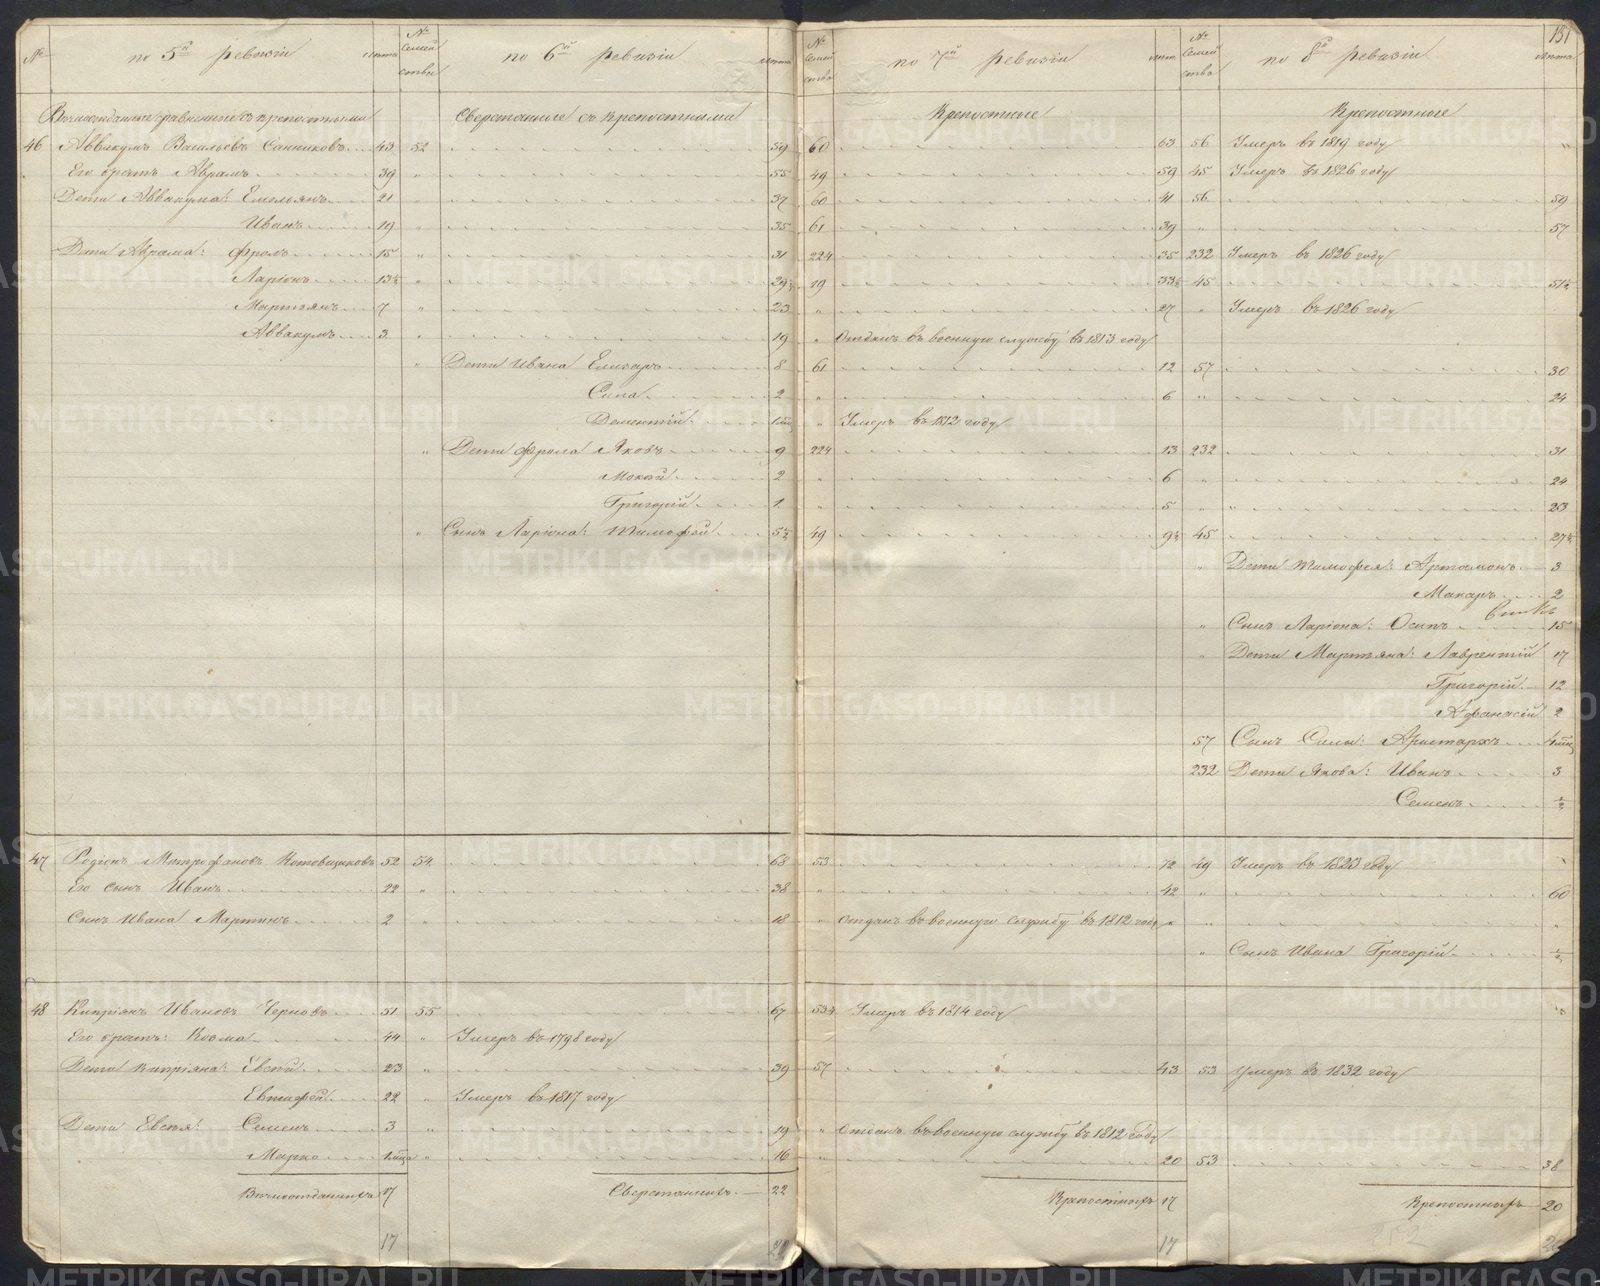 131
№ по 5й ревизiи лѣта № Семей ства по 6й ревизiи лѣта № Семей ства по 7й ревизiи лѣта № Семей ства по 8й ревизiи лѣта
Вѣчноотданные равненые съ крепостными Сверстанные съ крепостными Крепостные Крепостные
46 Аввакумъ Васильевъ Санниковъ 43 52 59 60 63 56 Умеръ въ 1819 году "
Его братъ Аврамъ 39 " 55 49 59 45 Умеръ въ 1826 году
Дети Аввакума: Емельянъ 21 " 37 60 41 56 59
Иванъ 19 " 35 61 39 " 57
Дети Аврама: Фролъ 15 " 31 224 35 232 Умеръ въ 1826 году
Ларiонъ 13½ " 29½ 19 33½ 45 51½
Мартьянъ 7 " 23 " 27 " Умеръ въ 1826 году
Аввакумъ 3 " 19 " Отданъ въ военную службу въ 1813 году
" Дети Ивана Елизаръ 8 61 12 57 30
Сила 2 " 6 " 24
Дементiй " Умеръ въ 1812 году
" Дети Фрола Яковъ 9 224 13 232 31
Мокей 2 " 6 " 24
Григорiй 1 " 5 " " 23
" Сынъ Ларiона: Тимофей 5½ 49 9½ 45 27½
" Дети Тимофея: Артамонъ 3
Макаръ 2
" Сынъ Ларiона: Осипъ 15
" Дети Мартьяна: Лаврентiй 17
Григорiй 12
Афанасiй 2
57 Сынъ Силы: Аристархъ 4 мец
232 Дети Якова: Иванъ 3
Семенъ ½
47 Родiонъ Митрофановъ Котовщиковъ 52 54 68 53 72 49 Умеръ въ 1823 году
Его сынъ Иванъ 22 " 38 " 42 " 60
Сынъ Ивана Мартинъ 2 " 18 " Отданъ въ военную службу въ 1812 году " " "
" Сынъ Ивана Григорiй ½
48 Кипрiянъ Ивановъ Черновъ 51 55 67 534 Умеръ въ 1814 году
Его братъ: Козма 44 " Умеръ въ 1798 году
Дети Кипрiяна: Евсей 23 " 39 57 43 53 Умеръ въ 1832 году
Евтифей 22 " Умеръ въ 1817 году
Дети Евсея: Семенъ 3 " 19 " Отданъ въ военную службу въ 1812 году
Марко 1 мца " 16 " 20 53 38
Вѣчноотданныхъ 17 Сверстанныхъ 22 Крепостныхъ 17 Крепостныхъ 20
17 22 17 252
METRIKI.GASO-URAL.RU